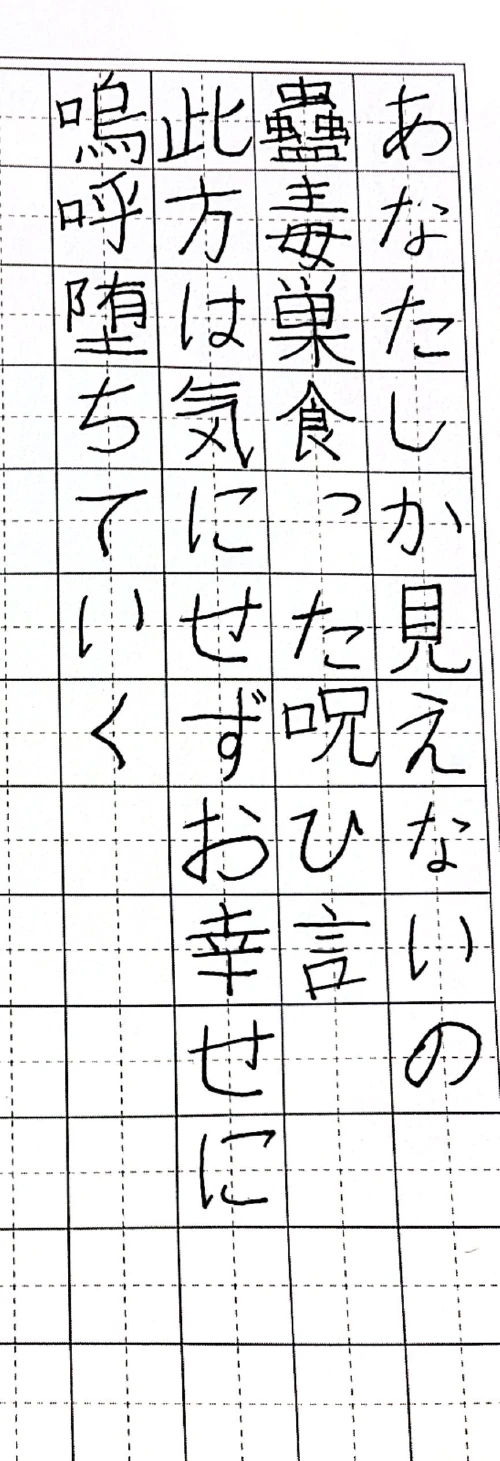 あなたしか見えないの
蠱毒巣食った呪ひ言
此方は気にせずお幸せに
嗚呼堕ちていく